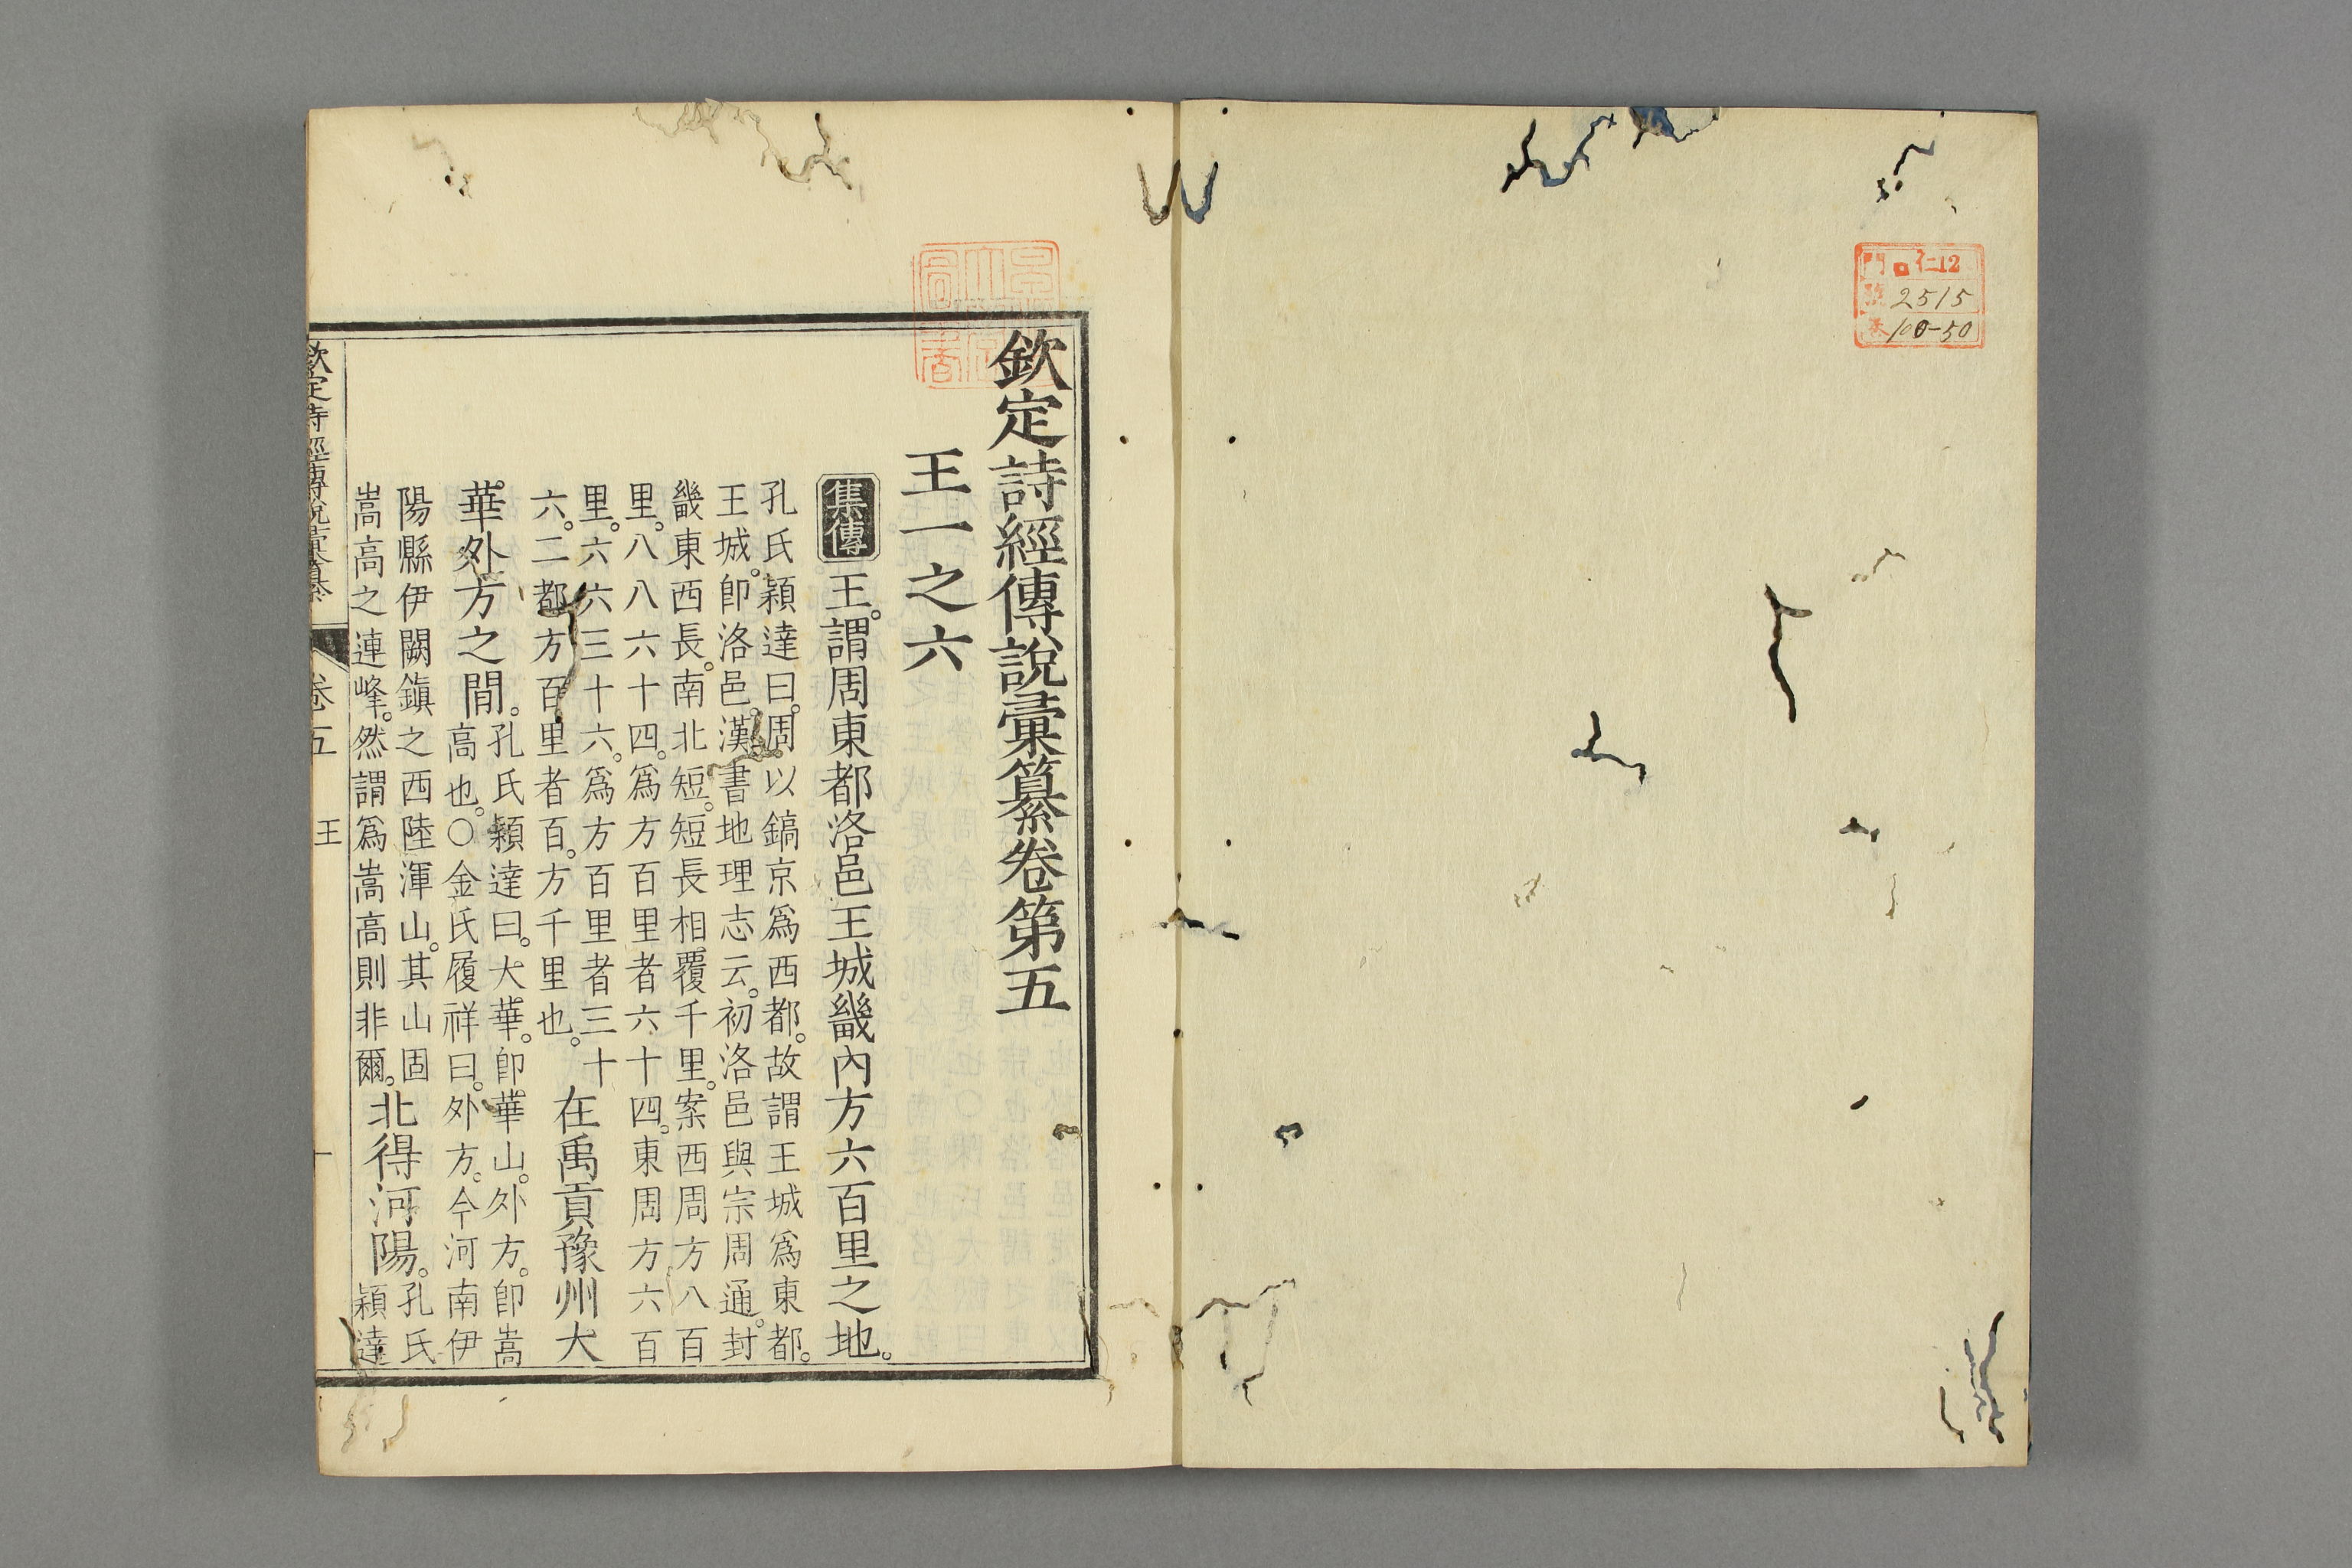 仁12
2515
100-50
欽定詩經傳說彙纂卷第五
王一之六
集傳 王。謂周東都洛邑王城畿內方六百里之地。
孔氏穎達曰。周以鎬京爲西都。故謂王城爲東都。
王城。卽洛邑。漢書地理志云。初洛邑與宗周通。封
畿東西長。南北短。短長相覆千里。案西周方八百
里。八八六十四。爲方百里者六十四。東周方六百
里。六六三十六。爲方百里者三十
六。二都方百里者百。方千里也。
在禹貢豫州大
華外方之閒。
孔氏穎達曰。大華。卽華山。外方。卽嵩
高也。○金氏履祥曰。外方。今河南伊
陽縣伊闕鎭之西陸渾山。其山固
嵩高之連峰。然謂爲嵩高則非爾。
北得河陽。
孔氏
穎達
欽定詩經傳說彙纂 卷五 王 一